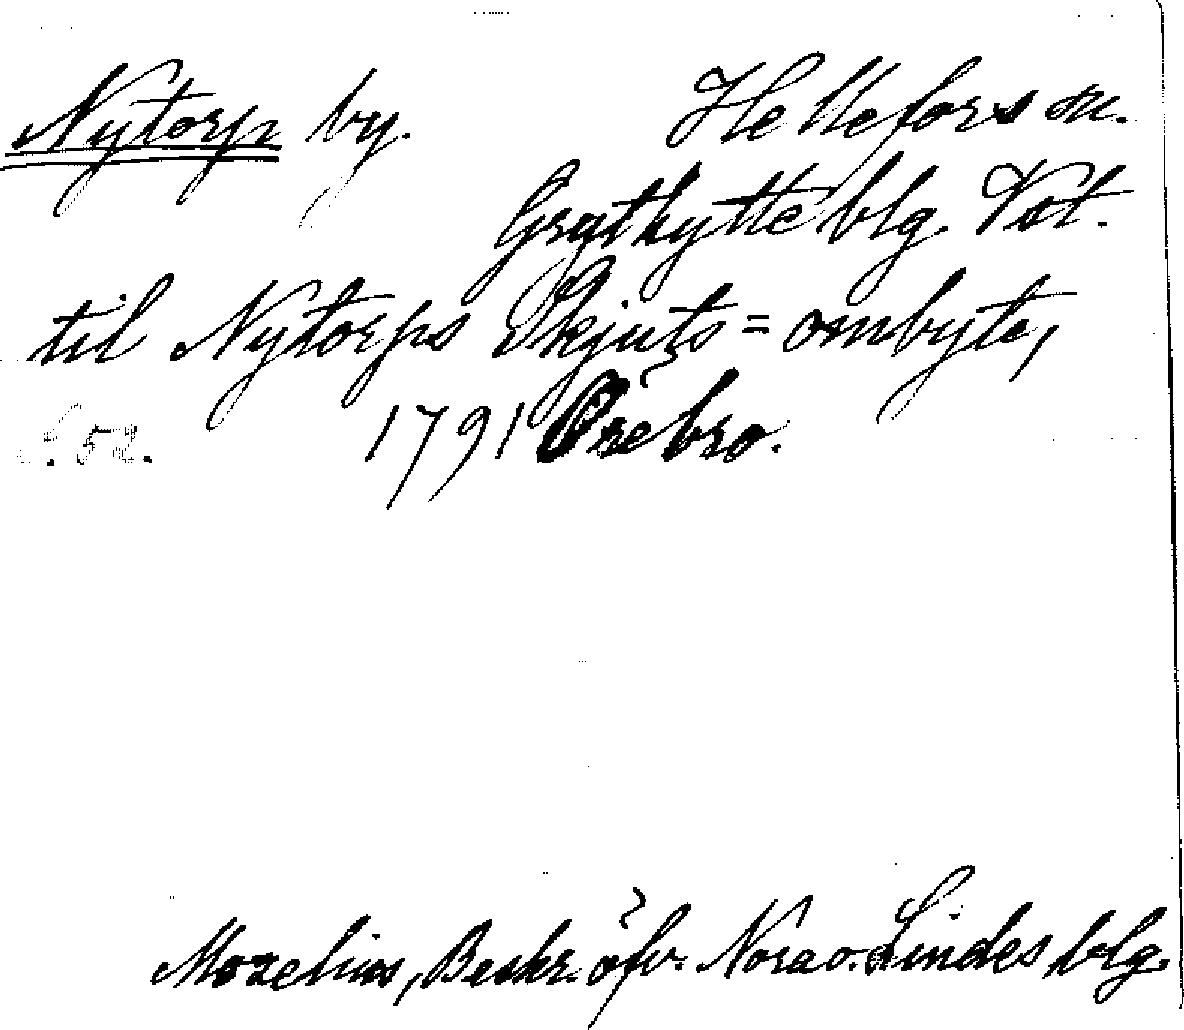 Nytorp by. Hellefors sn.
Grythytte blg. Vst.
til Nytorps Skjuts=ombyte,
S. 52. 1791 Örebro.
Mozelius, Beskr. öfv. Nora o. Lindes blg.